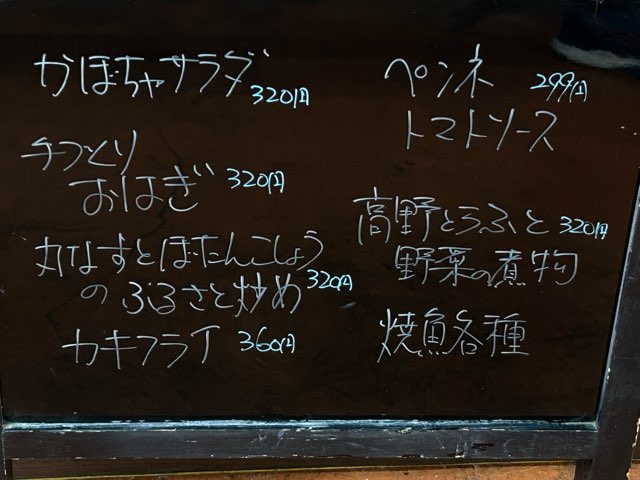 かぼちゃサラダ 320円
手づくり
おはぎ 320円
丸なすとぼたんこしょう
のふるさと炒め 320円
カキフライ 360円
ペンネ 299円
トマトソース
高野とうふと 320円
野菜の煮物
焼魚各種